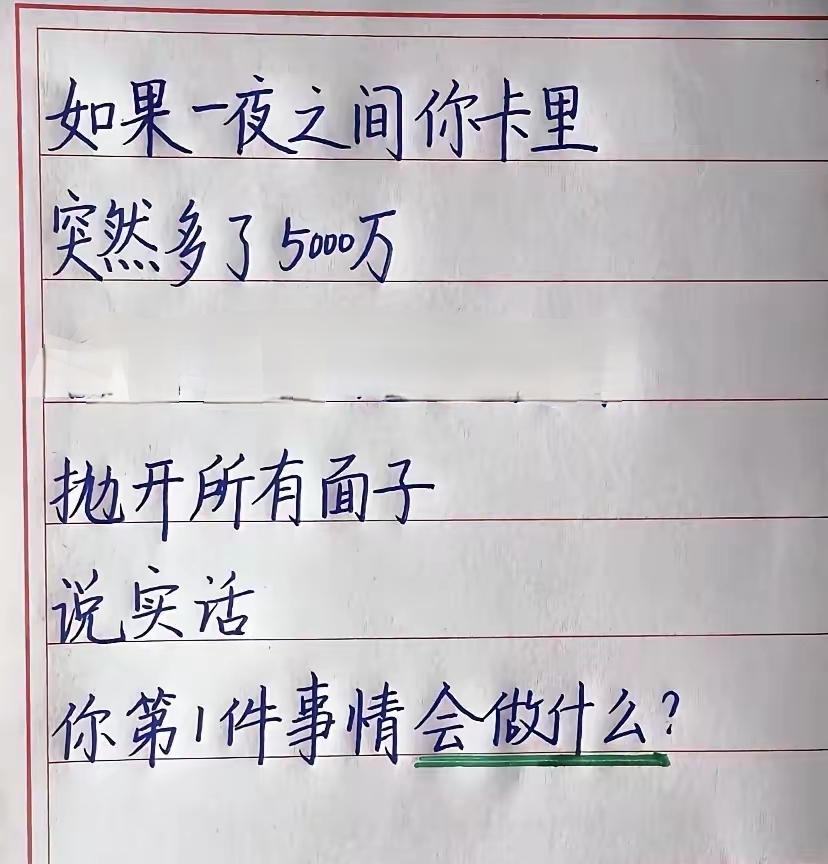 如果一夜之间你卡里
突然多了5000万
抛开所有面子
说实话
你第1件事情会做什么?